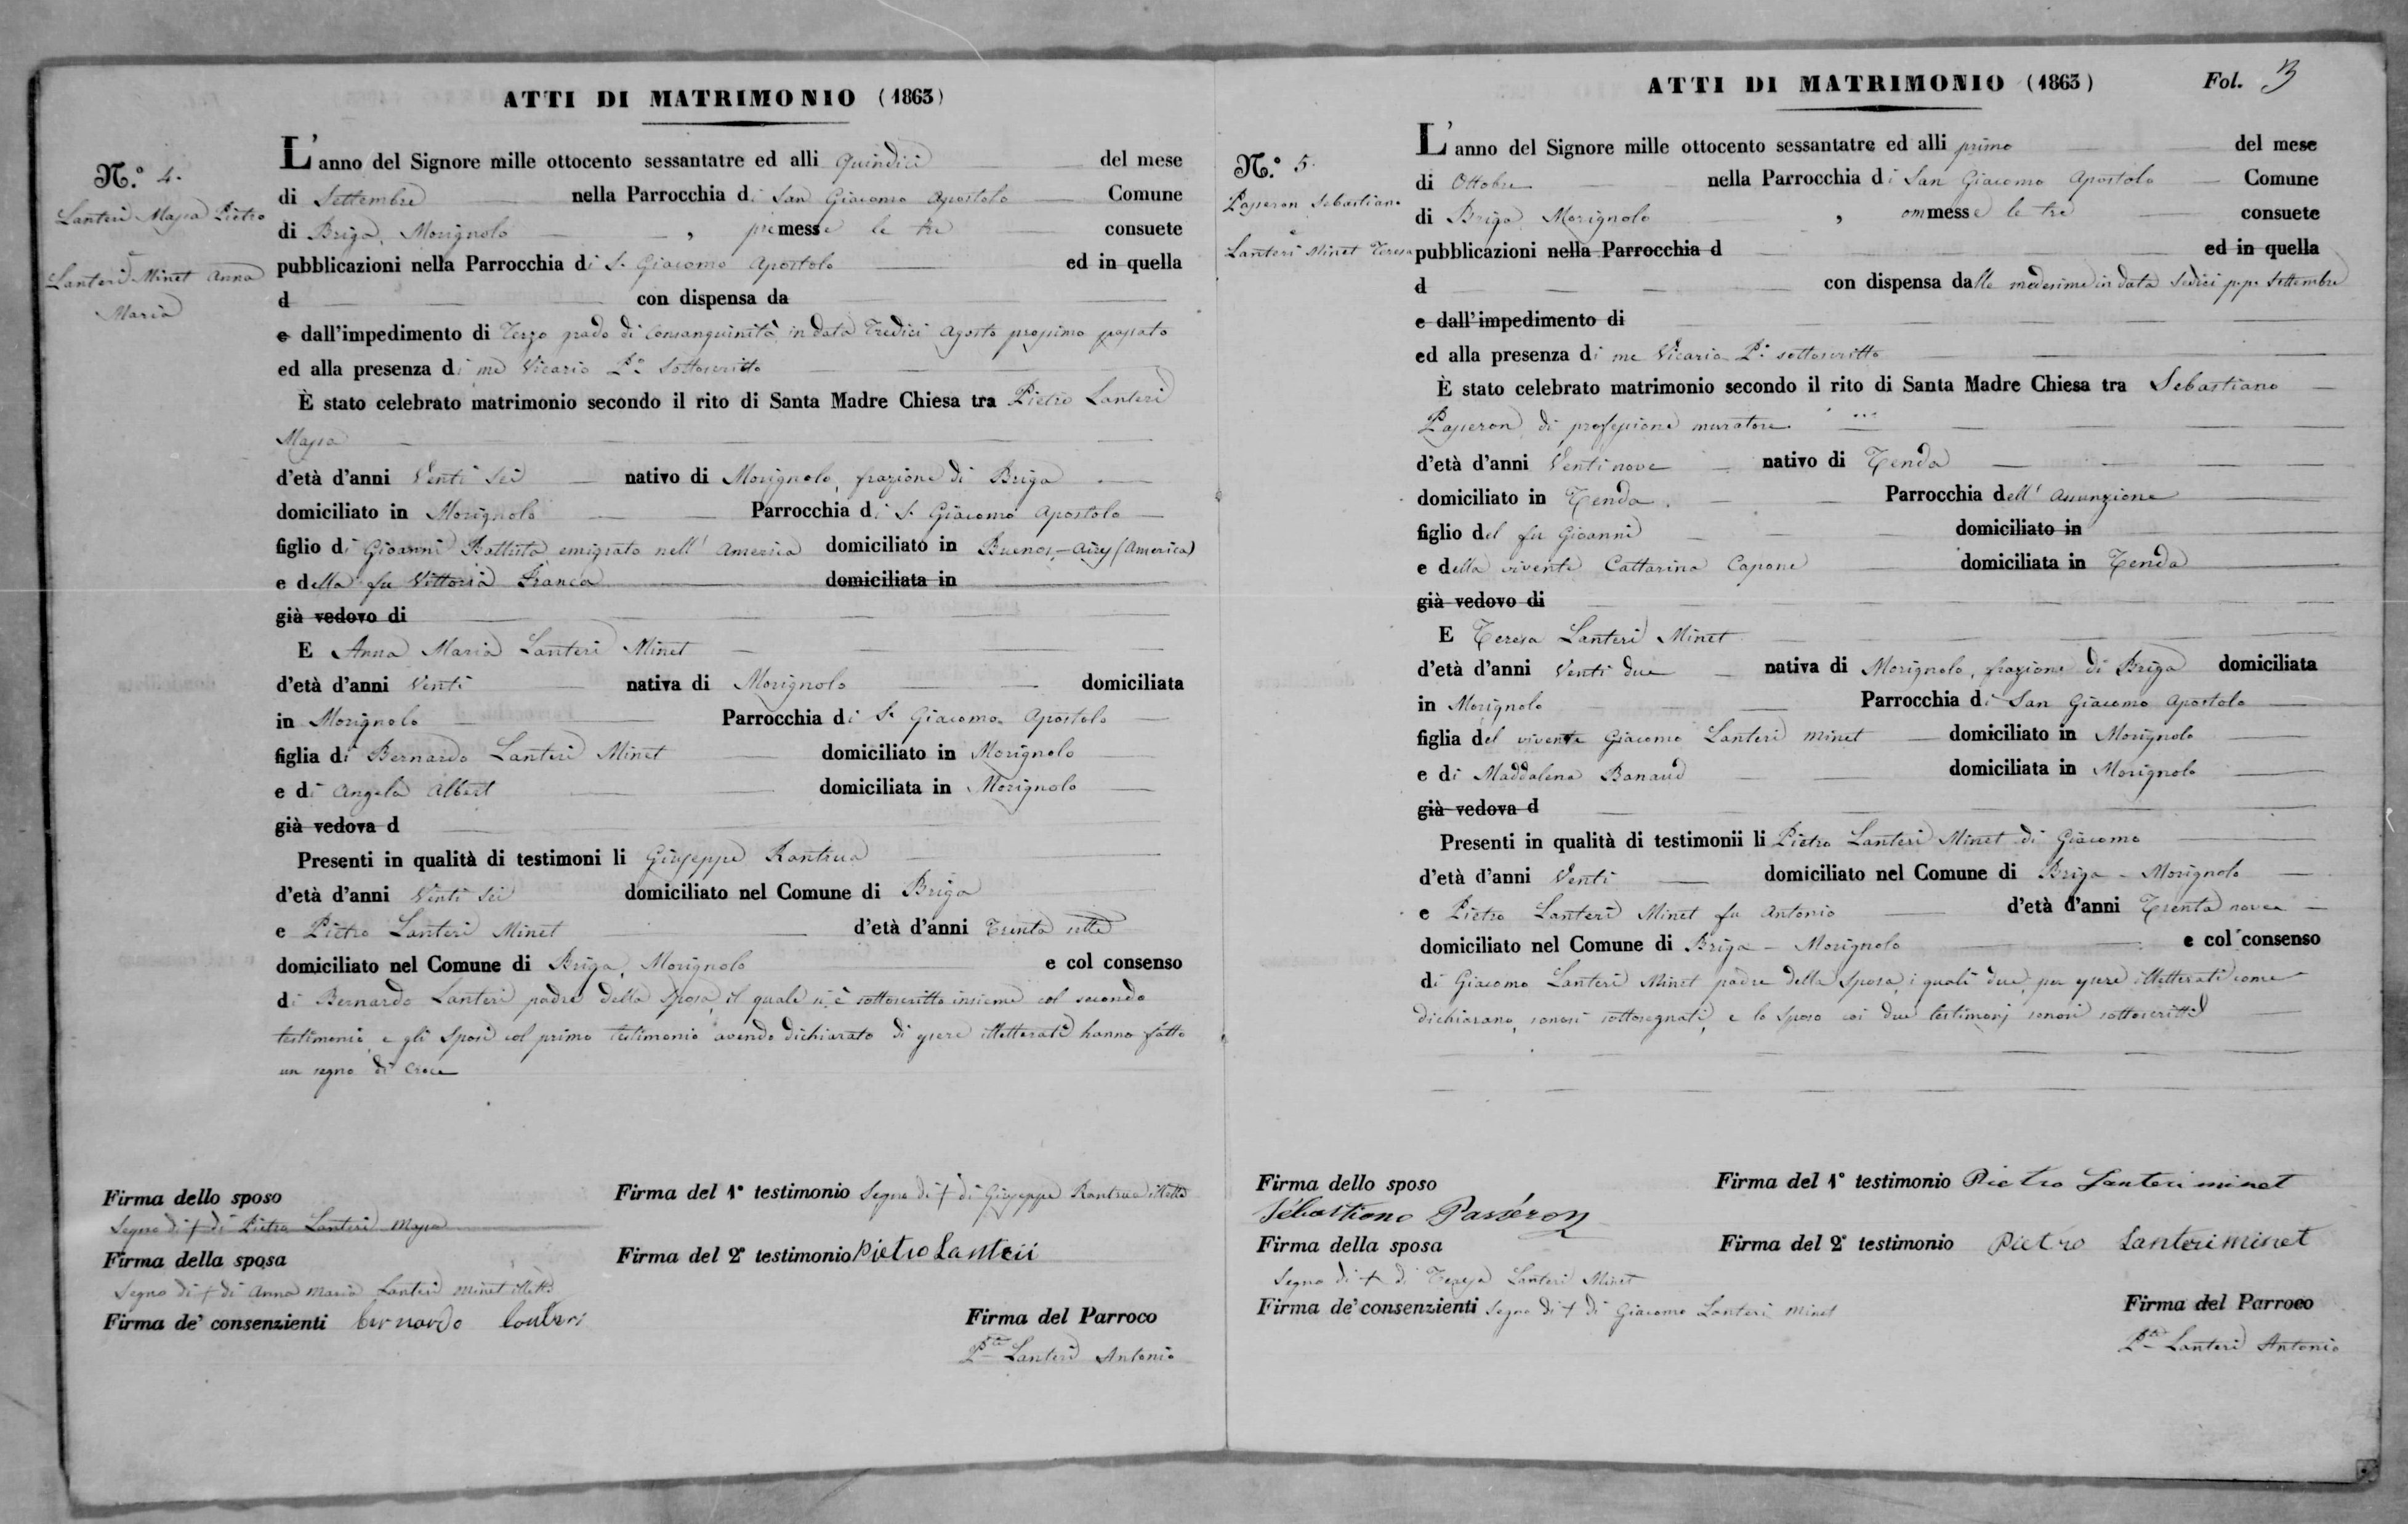 ATTI DI MATRIMONIO (1863)
N.º 4.
Lanteri Massa Pietro
e
Lanteri Minet Anna
Maria
L'anno del Signore mille ottocento sessantatre ed alli Quindici del mese
di Settembre nella Parrocchia di San Giacomo Apostolo Comune
di Briga, Morignolo, premesse le tre consuete
pubblicazioni nella Parrocchia di S. Giacomo Apostolo ed in quella
d con dispensa da
e dall'impedimento di Terzo grado di Consanguinità, in data Tredici Agosto prossimo passato
ed alla presenza di me Vicario Pº sottoscritto
È stato celebrato matrimonio secondo il rito di Santa Madre Chiesa tra Pietro Lanteri
Massa
d'età d'anni Venti sei nativo di Morignolo, frazione di Briga
domiciliato in Morignolo Parrocchia di S. Giacomo Apostolo
figlio di Gioanni Battista emigrato nell' America domiciliato in Buenos-Aires (America)
e della fu Vittoria Franca domiciliata in
già vedovo di
E Anna Maria Lanteri Minet
d'età d'anni Venti nativa di Morignolo domiciliata
in Morignolo Parrocchia di S. Giacomo Apostolo
figlia di Bernardo Lanteri Minet domiciliato in Morignolo
e di Angela Albert domiciliata in Morignolo
già vedova d
Presenti in qualità di testimoni li Giuseppe Rontrua
d'età d'anni Venti Sei domiciliato nel Comune di Briga
e Pietro Lanteri Minet d'età d'anni Trenta sette
domiciliato nel Comune di Briga, Morignolo e col consenso
di Bernardo Lanteri padre della Sposa, il quale si è sottoscritto insieme col secondo
testimonio, e gli Sposi col primo testimonio avendo dichiarato di essere illetterati hanno fatto
un segno di Croce
Firma dello sposo
Segno di + di Pietro Lanteri Massa
Firma della sposa
Segno di + di Anna Maria Lanteri Minet illettª
Firma de' consenzienti bernardo lonteri
Firma del 1º testimonio Segno di + di Giuseppe Rontrua illettº
Firma del 2º testimonio Pietro Lanteri
Firma del Parroco
Pte Lanteri Antonio
ATTI DI MATRIMONIO (1863) Fol. 3
N.º 5.
Passeron Sebastiano
e
Lanteri Minet Teresa
L'anno del Signore mille ottocento sessantatre ed alli primo del mese
di Ottobre nella Parrocchia di San Giacomo Apostolo Comune
di Briga Morignolo, ommesse le tre consuete
pubblicazioni nella Parrocchia d ed in quella
d con dispensa dalle medesime in data Sedici p.p. Settembre
e dall'impedimento di
ed alla presenza di me Vicario Pº sottoscritto
È stato celebrato matrimonio secondo il rito di Santa Madre Chiesa tra Sebastiano
Passeron, di professione muratore
d'età d'anni Venti nove nativo di Tenda
domiciliato in Tenda Parrocchia dell' Assunzione
figlio del fu Gioanni domiciliato in
e della vivente Cattarina Capone domiciliata in Tenda
già vedovo di
E Teresa Lanteri Minet
d'età d'anni Venti due nativa di Morignolo, frazione di Briga domiciliata
in Morignolo Parrocchia di San Giacomo Apostolo
figlia del vivente Giacomo Lanteri Minet domiciliato in Morignolo
e di Maddalena Banaud domiciliata in Morignolo
già vedova d
Presenti in qualità di testimonii li Pietro Lanteri Minet di Giacomo
d'età d'anni Venti domiciliato nel Comune di Briga - Morignolo
e Pietro Lanteri Minet fu Antonio d'età d'anni Trenta nove
domiciliato nel Comune di Briga - Morignolo e col consenso
di Giacomo Lanteri Minet padre della Sposa, i quali due, per essere illetterati come
dichiarano, sonosi sottosegnati, e lo Sposo coi due testimonj sonosi sottoscritti
Firma dello sposo
Sébastiano Passéron
Firma della sposa
Segno di + di Teresa Lanteri Minet
Firma de' consenzienti Segno di + di Giacomo Lanteri Minet
Firma del 1º testimonio Pietro Lanteri minet
Firma del 2º testimonio Pietro Lanteri minet
Firma del Parroco
Pte Lanteri Antonio